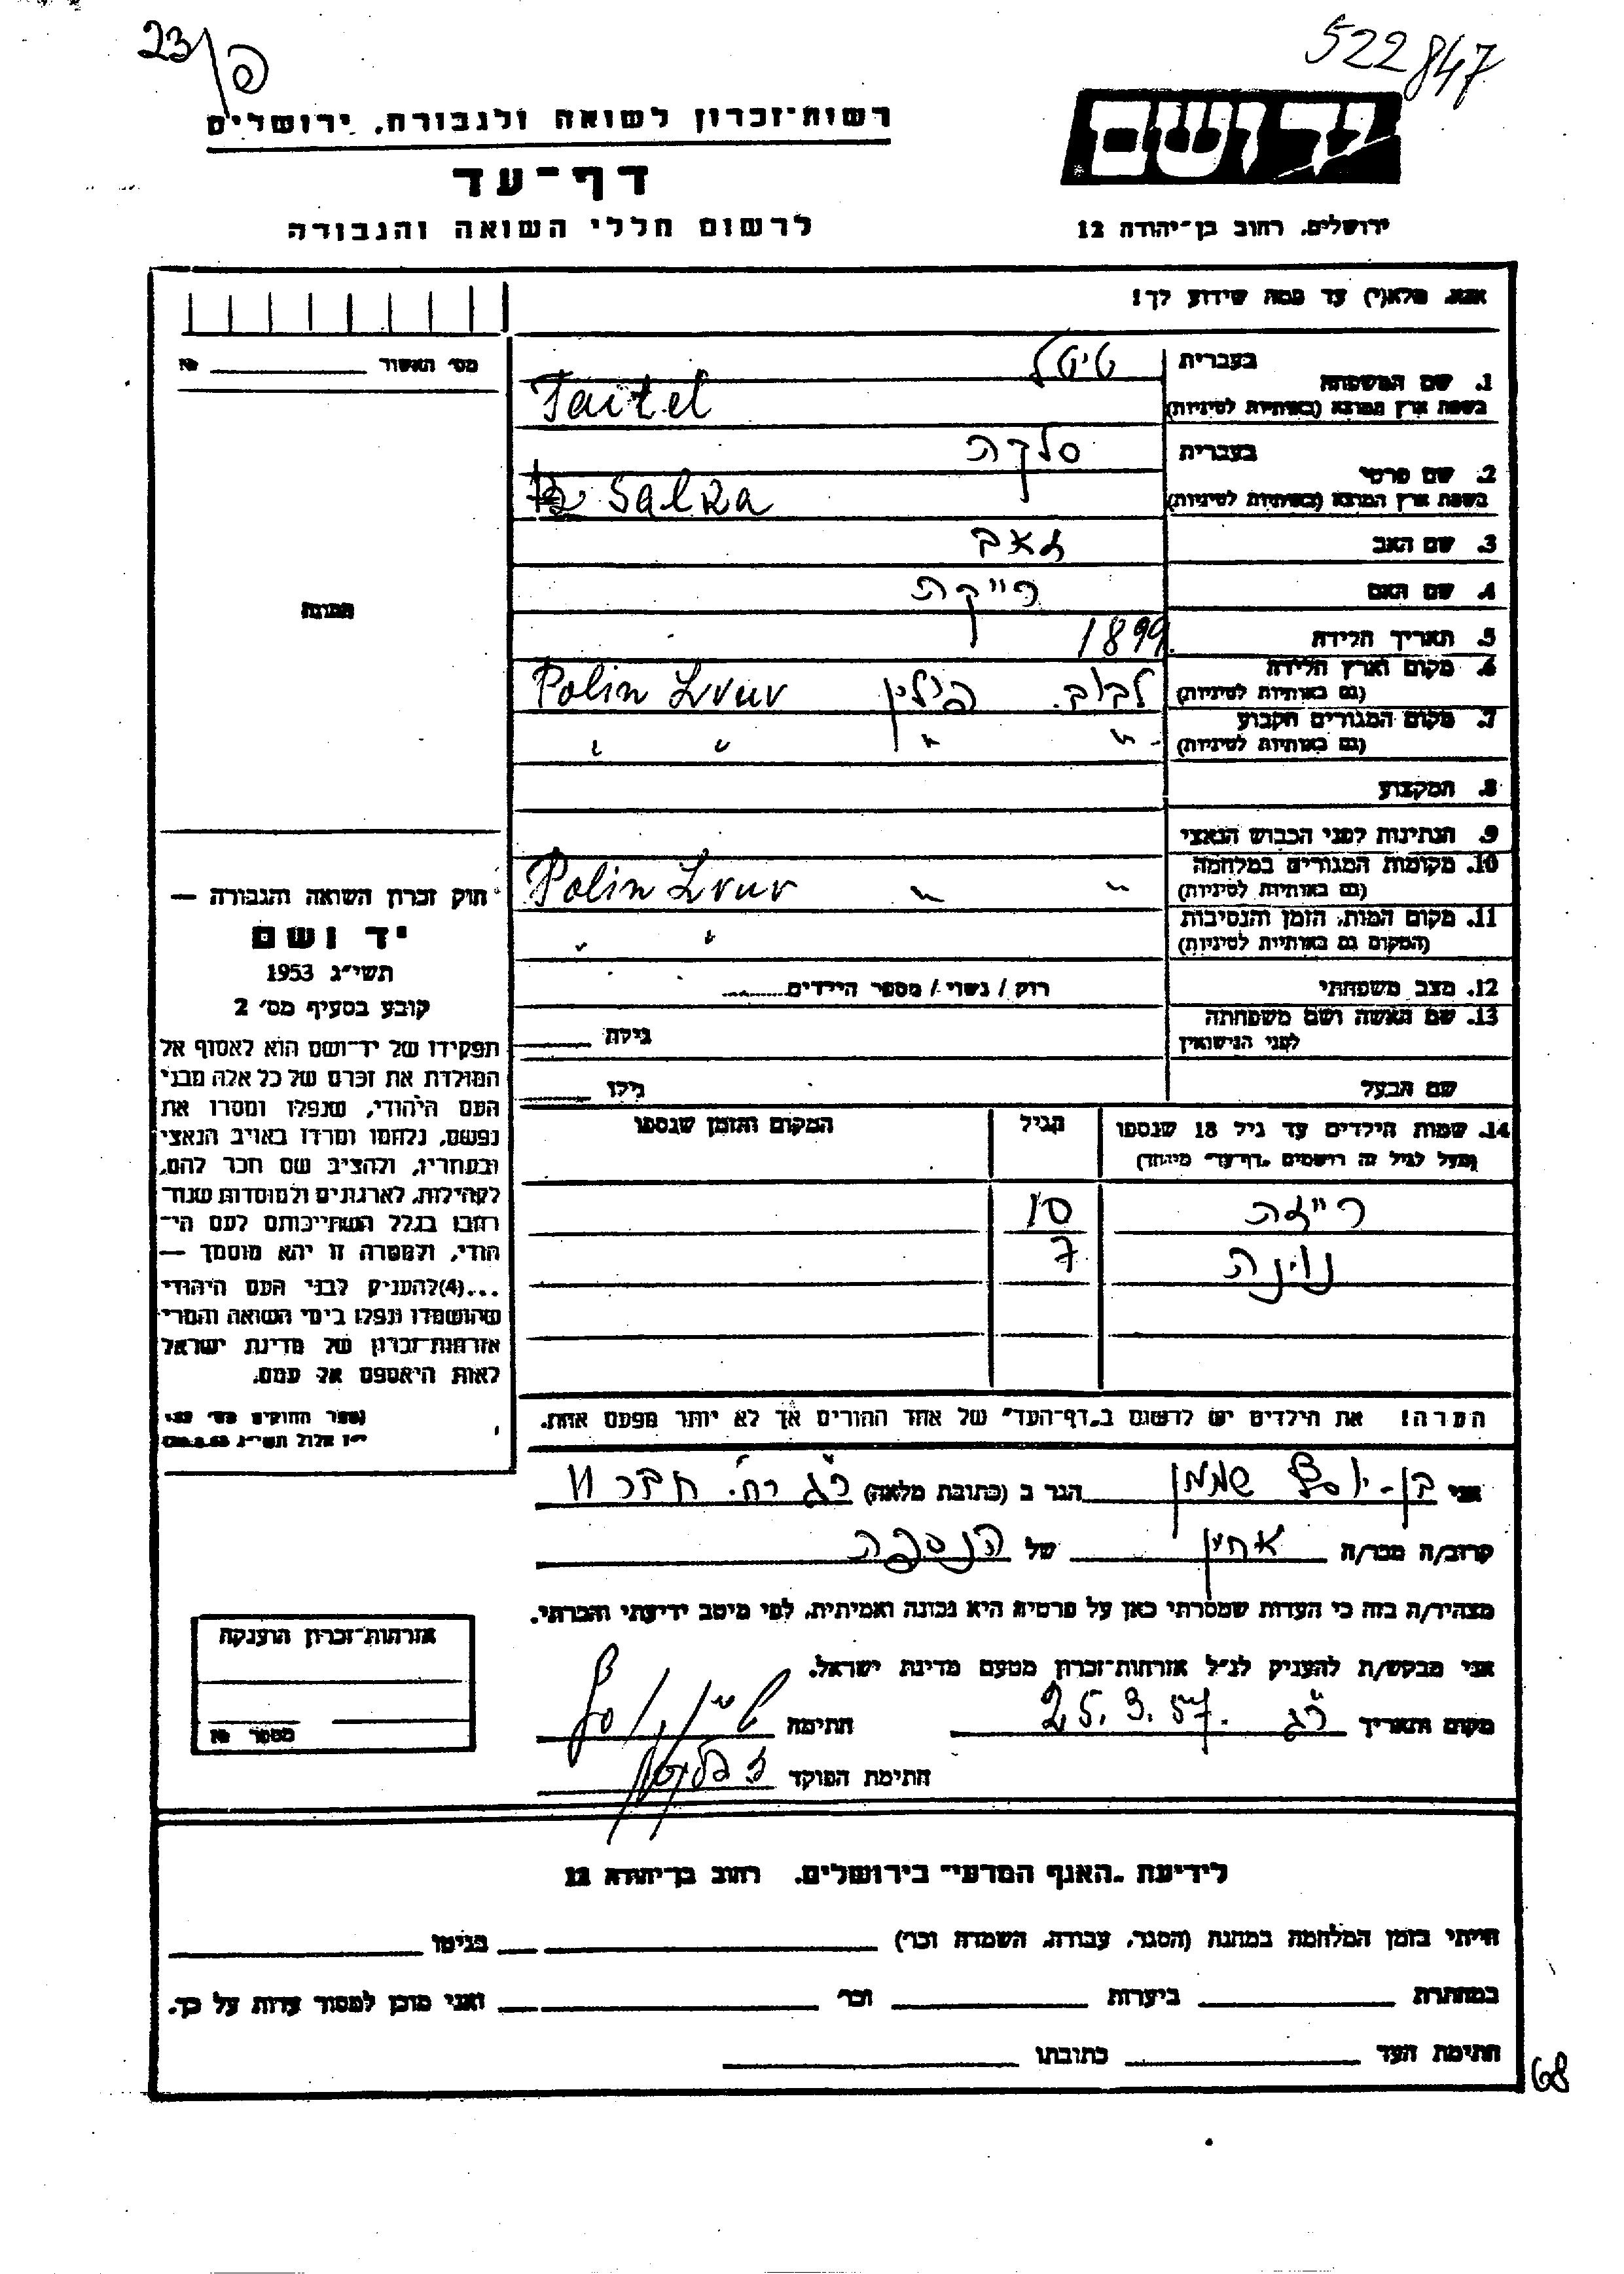 23/פ
522847
רשות־זכרון לשואה ולגבורה, ירושלים
יד ושם
דף־עד
לרשום חללי השואה והגבורה
ירושלים, רחוב בן־יהודה 12
אנא, מלא(י) עד כמה שידוע לך!
מס׳ האשור №
1. שם המשפחה
בעברית
טיטל
בשפת ארץ המוצא (באותיות לטיניות)
Taitel
2. שם פרטי
בעברית
סלקה
בשפת ארץ המוצא (באותיות לטיניות)
Salka
3. שם האב
זאב
4. שם האם
רייקה
5. תאריך הלידה
1899
6. מקום וארץ הלידה
(גם באותיות לטיניות)
לבוב. פולין Polin Lvuv
7. מקום המגורים הקבוע
(גם באותיות לטיניות)
" " " "
8. המקצוע
9. הנתינות לפני הכבוש הנאצי
10. מקומות המגורים במלחמה
(גם באותיות לטיניות)
" " Polin Lvuv
11. מקום המות, הזמן והנסיבות
(המקום גם באותיות לטיניות)
" "
12. מצב משפחתי
רוק / נשוי / מספר הילדים
13. שם האשה ושם משפחתה
לפני הנישואין
גילה
שם הבעל
גילו
14. שמות הילדים עד גיל 18 שנספו
(מעל לגיל זה רושמים "דף־עד" מיוחד)
הגיל
המקום והזמן שנספו
10
7
התמונה
חוק זכרון השואה והגבורה —
יד ושם
תשי״ג 1953
קובע בסעיף מס׳ 2
תפקידו של יד־ושם הוא לאסוף אל
המולדת את זכרם של כל אלה מבני
העם היהודי, שנפלו ומסרו את
נפשם, נלחמו ומרדו באויב הנאצי
ובעוזריו, ולהציב שם וזכר להם,
לקהילות, לארגונים ולמוסדות שנח־
רבו בגלל השתייכותם לעם הי־
הודי, ולמטרה זו יהא מוסמך —
...(4) להעניק לבני העם היהודי
שהושמדו ונפלו בימי השואה והמרי
אזרחות־זכרון של מדינת ישראל
לאות היאספם אל עמם.
הערה! את הילדים יש לרשום ב„דף־העד" של אחד ההורים אך לא יותר מפעם אחת.
אני בן-יוסף הגר ב (כתובת מלאה) ר״ג רח׳.
קרוב/ה מכר/ה אחיין של הנספה
מצהיר/ה בזה כי העדות שמסרתי כאן על פרטיה היא נכונה ואמיתית, לפי מיטב ידיעתי והכרתי.
אני מבקש/ת להעניק לנ״ל אזרחות־זכרון מטעם מדינת ישראל.
מקום ותאריך ר״ג 25.3.57. חתימה
חתימת הפוקד
אזרחות־זכרון הוענקה
מספר №
לידיעת „האגף המדעי" בירושלים. רחוב בן־יהודה 12
הייתי בזמן המלחמה במחנה (הסגר, עבודה, השמדה וכו׳) בגיטו
במחתרת ביערות וכו׳ ואני מוכן למסור עדות על כך.
חתימת העד כתובתו
68